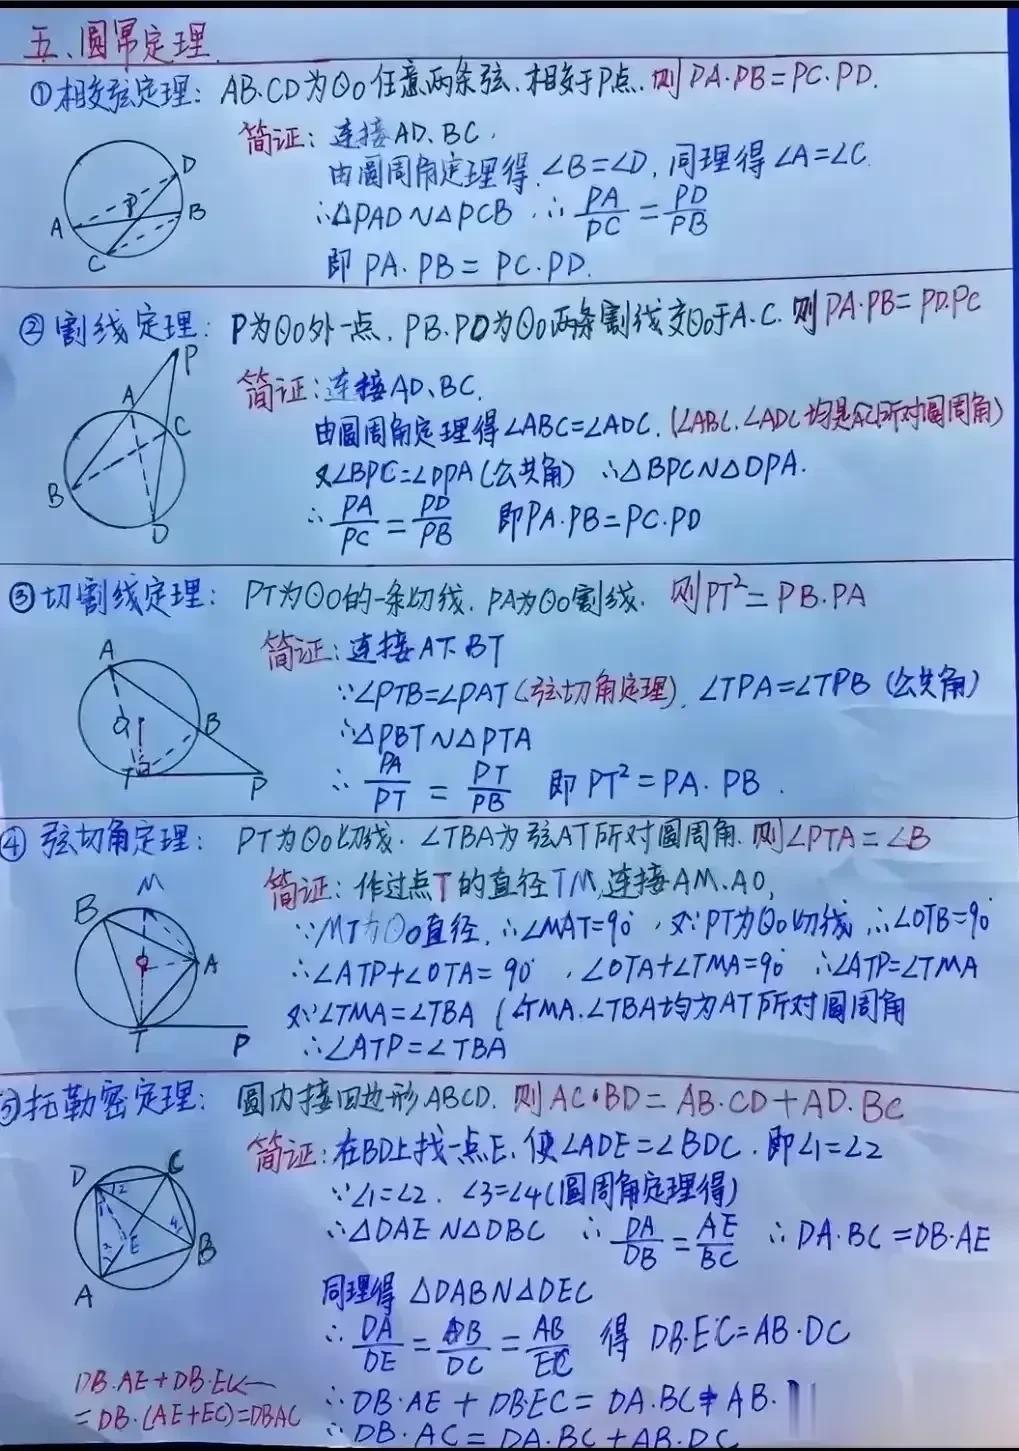 五、圆幂定理.
①相交弦定理: AB.CD为⊙O任意两条弦.相交于P点.则PA·PB=PC·PD.
简证: 连接AD、BC,
由圆周角定理得.∠B=∠D,同理得∠A=∠C.
∴△PAD∽△PCB ∴ PA/PC = PD/PB
即 PA·PB = PC·PD.
D
P
B
A
C
②割线定理: P为⊙O外一点.PB.PD为⊙O两条割线交⊙O于A.C.则PA·PB=PD·PC
简证: 连接AD、BC.
由圆周角定理得∠ABC=∠ADC.(∠ABC.∠ADC均是AC所对圆周角)
又∠BPC=∠DPA(公共角) ∴△BPC∽△DPA.
∴ PA/PC = PD/PB 即PA·PB=PC·PD
P
A
C
B
D
③切割线定理: PT为⊙O的一条切线.PA为⊙O割线. 则PT²=PB·PA
简证: 连接AT、BT
∵∠PTB=∠PAT(弦切角定理).∠TPA=∠TPB(公共角)
∴△PBT∽△PTA
∴ PA/PT = PT/PB 即 PT²=PA·PB.
A
O
B
T
P
④弦切角定理: PT为⊙O切线.∠TBA为弦AT所对圆周角.则∠PTA=∠B
简证: 作过点T的直径TM,连接AM.AO,
∵MT为⊙O直径.∴∠MAT=90°,又∵PT为⊙O切线∴∠OTB=90°
∴∠ATP+∠OTA=90°,∠OTA+∠TMA=90° ∴∠ATP=∠TMA
又∵∠TMA=∠TBA (∠TMA.∠TBA均为AT所对圆周角
∴∠ATP=∠TBA
M
B
O
A
T
P
⑤托勒密定理: 圆内接四边形ABCD.则AC·BD=AB·CD+AD·BC
简证: 在BD上找一点E.使∠ADE=∠BDC.即∠1=∠2
∵∠1=∠2.∠3=∠4(圆周角定理得)
∴△DAE∽△DBC ∴ DA/DB = AE/BC ∴DA·BC=DB·AE
同理得 △DAB∽△DEC
∴ DA/DE = DB/DC = AB/EC 得 DB·EC=AB·DC
∴DB·AE+DB·EC=DA·BC+AB·
∴DB·AC=DA·BC+AB·DC
D
C
2
4
E
3
B
A
DB·AE+DB·EC
=DB·(AE+EC)=DBAC